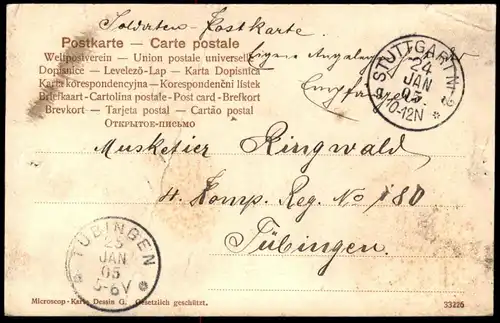 Soldaten-Postkarte.
Postkarte — Carte postale
Weltpostverein — Union postale universelle
Dopisnice — Levelező-Lap — Karta Dopisnica
Karta korespondencyjna — Korespondenčni listek
Briefkaart - Cartolina postale - Post card - Brefkort
Brevkort — Tarjeta postal — Cartão postal
Открытое-письмо
Eigene Angelegenheit
Empfängers.
STUTTGART Nr. 2
24
JAN
05.
10-12N
Musketier Ringwald
4. Komp. Reg. No 180
Tübingen
TÜBINGEN
25
JAN
05
5-6V
Microscop-Karte Dessin G. Gesetzlich geschützt.
33226